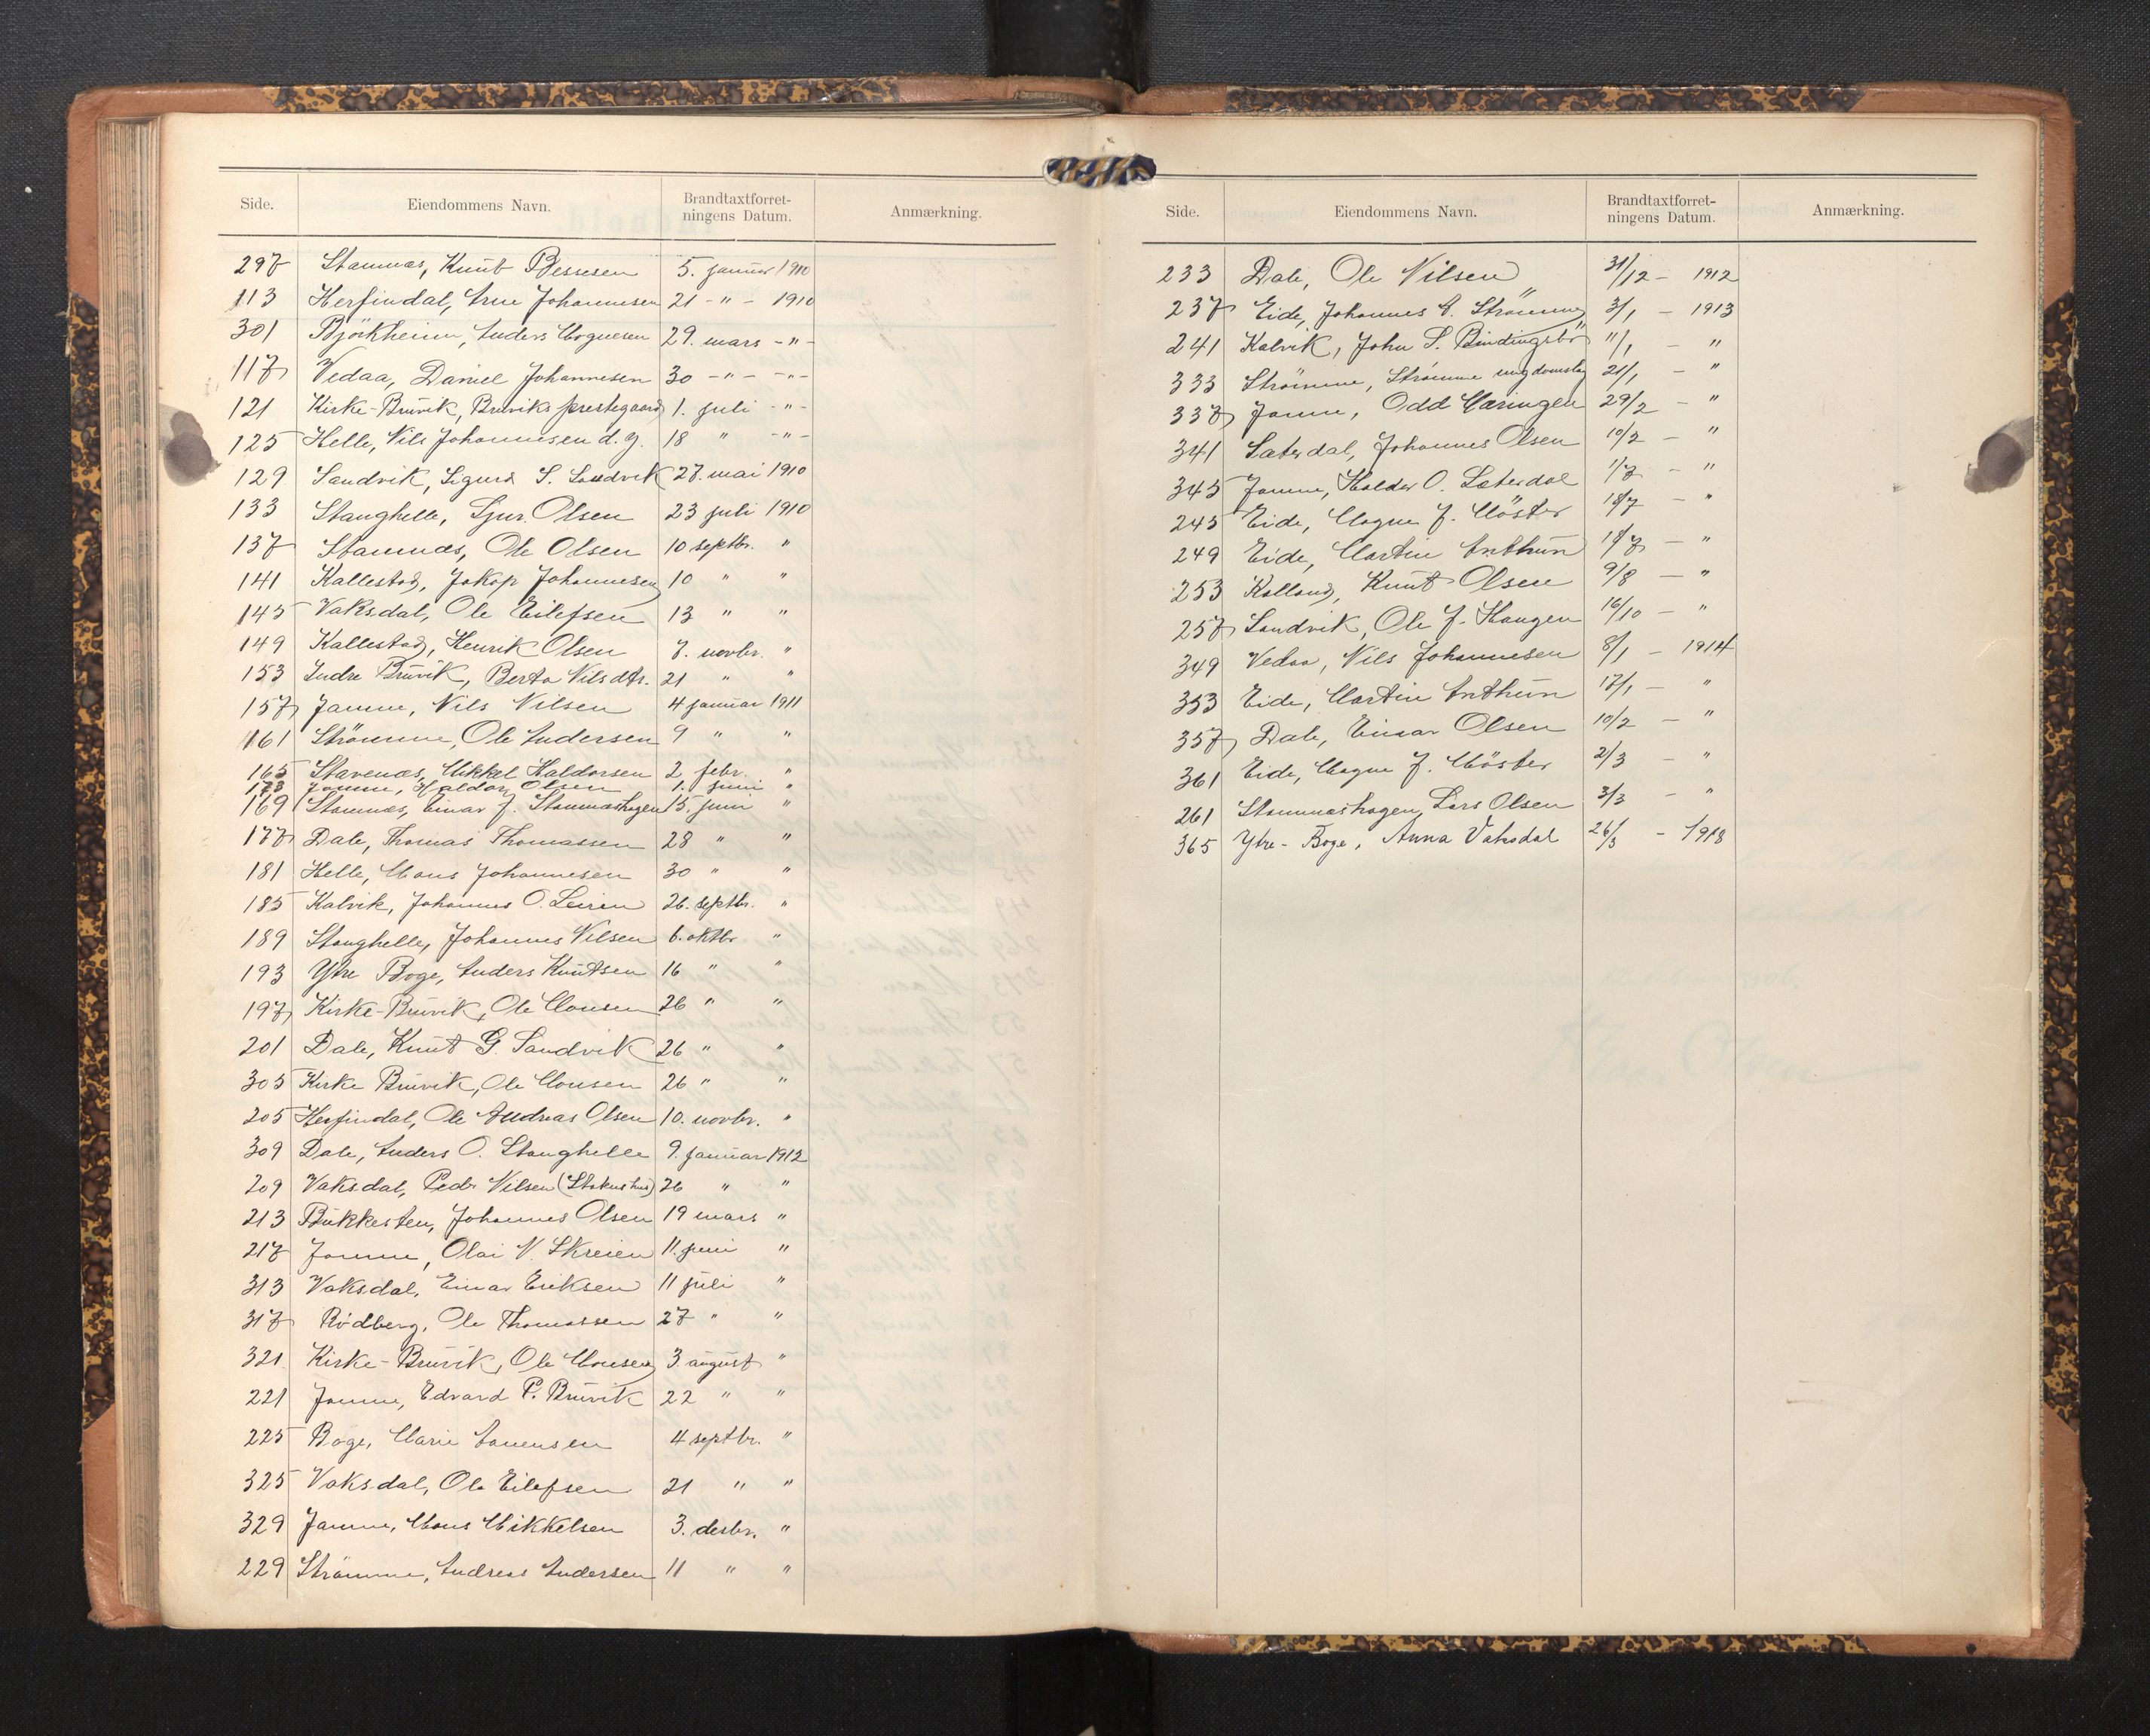 Side. Eiendommens Navn. Brandtaxtforret-ningens Datum. Anmærkning.
297 Stamnæs, Knut Bessesen 5. januar 1910
113 Herfindal, Arne Johannesen 21 - " - 1910
301 Björkheim, Anders Mognesen 29. mars - " -
117 Vedaa, Daniel Johannesen 30 - " - - " -
121 Kirke-Bruvik, Bruviks prestegaard 1. juli - " -
125 Helle, Nils Johannesen d.y. 18 " - " -
129 Sandvik, Sigurd S. Sandvik 27. mai 1910
133 Stanghelle, Sjur Olsen 23 juli 1910
137 Stamnæs, Ole Olsen 10 septbr. "
141 Kallestad, Jakop Johannesen 10 " "
145 Vaksdal, Ole Eilefsen 13 " "
149 Kallestad, Henrik Olsen 7. novbr. "
153 Indre Bruvik, Berta Nilsdtr. 21 " "
157 Jamne, Nils Nilsen 4 januar 1911
161 Strömme, Ole Andersen 9 " "
165 Stavenæs, Mikkel Haldorsen 2. febr. "
173 Jamne, Haldor Olsen 1. juni "
169 Stamnæs, Einar J. Stamnæshagen 15. juni "
177 Dale, Thomas Thomassen 28 " "
181 Helle, Mons Johannesen 30 " "
185 Kalvik, Johannes O. Leiren 26. septbr. "
189 Stanghelle, Johannes Nilsen 6. oktbr "
193 Ytre Boge, Anders Knutsen 16 " "
197 Kirke-Bruvik, Ole Monsen 26 " "
201 Dale, Knut G. Sandvik 26 " "
305 Kirke Bruvik, Ole Monsen 26 " "
205 Herfindal, Ole Andreas Olsen 10. novbr. "
309 Dale, Anders O. Stanghelle 9. januar 1912
209 Vaksdal, Peder Nilsen (Stokus hus) 26 " "
213 Bukkesten, Johannes Olsen 19 mars "
217 Jamne, Olai N. Skreien 11. juni "
313 Vaksdal, Einar Eriksen 11 juli "
317 Rödberg, Ole Thomassen 27 " "
321 Kirke-Bruvik, Ole Monsen 3. august "
221 Jamne, Edvard P. Bruvik 22 " "
225 Boge, Marie 4 septbr. "
325 Vaksdal, Ole Eilefsen 21 " "
329 Jamne, Mons Mikkelsen 3. desbr. "
229 Strömme, Andreas Andersen 11 " "
Side. Eiendommens Navn. Brandtaxtforret-ningens Datum. Anmærkning.
233 Dale, Ole Nilsen 31/12 - 1912
237 Eide, Johannes A. Strömme 3/1 - 1913
241 Kalvik, John S. Bindingsbö 11/1 - "
333 Strömme, Strömme ungdomslag 21/1 - "
337 Jamne, Odd Maringen 29/2 - "
341 Sæterdal, Johannes Olsen 10/2 - "
345 Jamne, Haldor O. Sæterdal 1/7 - "
245 Eide, Magne J. Möster 18/7 - "
249 Eide, Martin Anthun 18/7 - "
253 Kalland, Knut Olsen 9/8 - "
257 Sandvik, Ole J. Haugen 16/10 - "
349 Vedaa, Nils Johannesen 8/1 - 1914
353 Eide, Martin Anthun 17/1 - "
357 Dale, Einar Olsen 10/2 - "
361 Eide, Magne J. Möster 2/3 - "
261 Stamnæshagen, Lars Olsen 3/3 - "
365 Ytre-Boge, Anna Vaksdal 26/3 - 1918